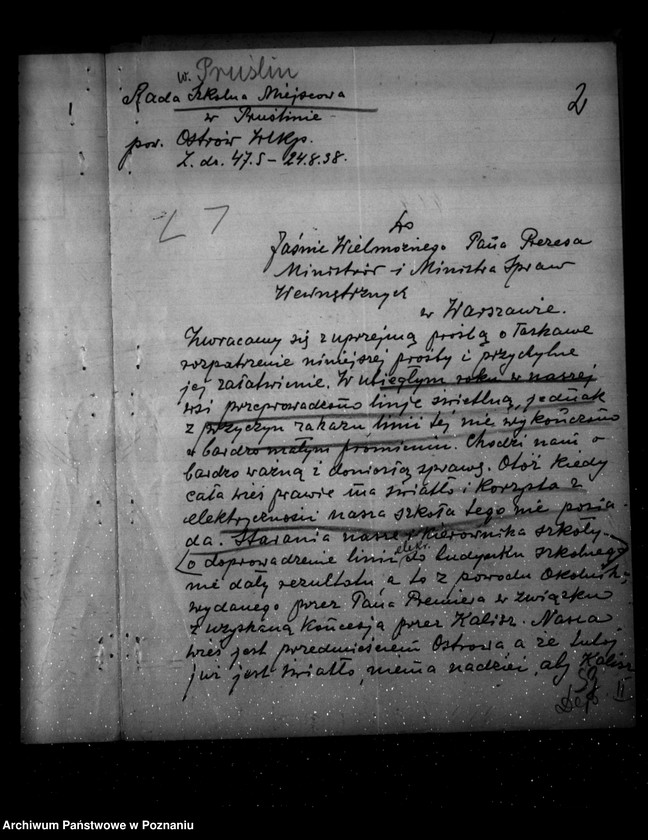 w. Pruślin
Rada Szkolna Miejscowa
w Pruślinie
pow. Ostrów Wlkp.
L. dz. 47.S – 24.8.38.
2
Do
Jaśnie Wielmożnego Pana Prezesa
Ministrów i Ministra Spraw
Wewnętrznych
w Warszawie.
Zwracamy się z uprzejmą prośbą o łaskawe
rozpatrzenie niniejszej prośby i przychylne
jej załatwienie. W ubiegłym roku w naszej
wsi przeprowadzono linję świetlną, jednak
z przyczyn zakazu linii tej nie wykończono
w bardzo małym promieniu. Chodzi nam o
bardzo ważną i doniosłą sprawę. Otóż kiedy
cała wieś prawie ma światło i korzysta z
elektryczności nasza szkoła tego nie posia-
da. Starania nasze i kierownika szkoły
o doprowadzenie linii elektr. do budynku szkolnego
nie dały rezultatu, a to z powodu Okólnik
wydanego przez Pana Premiera w związku
z uzyskaną koncesją przez Kalisz. Nasza
wieś jest przedmieściem Ostrowa a że tutaj
już jest światło, niema nadziei, aby Kalisz
Dep. II
Archiwum Państwowe w Poznaniu